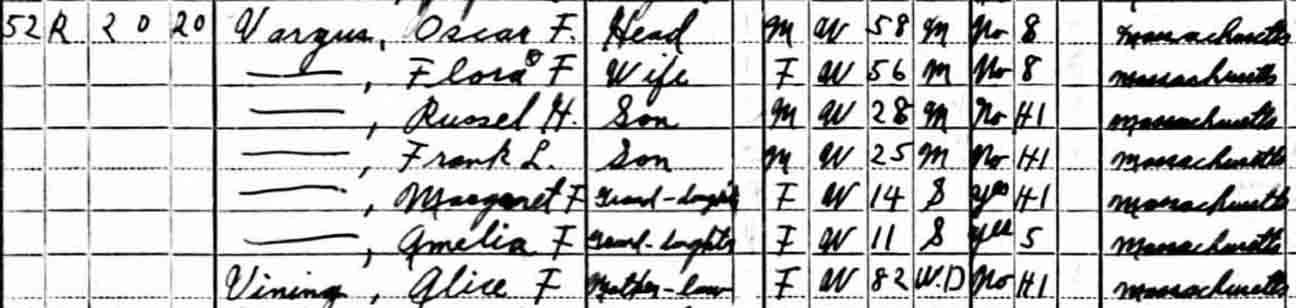 52 R 20 20 Vargus, Oscar F. Head M W 58 M No 8 Massachusetts
——, Flora F Wife F W 56 M No 8 Massachusetts
——, Russel H. Son M W 28 M No H1 Massachusetts
——, Frank L. Son M W 25 M No H1 Massachusetts
——, Margaret F Grand-daught F W 14 S Yes H1 Massachusetts
——, Amelia F Grand-daughter F W 11 S Yes 5 Massachusetts
Vining, Alice F Mother-law F W 82 W.D No H1 Massachusetts